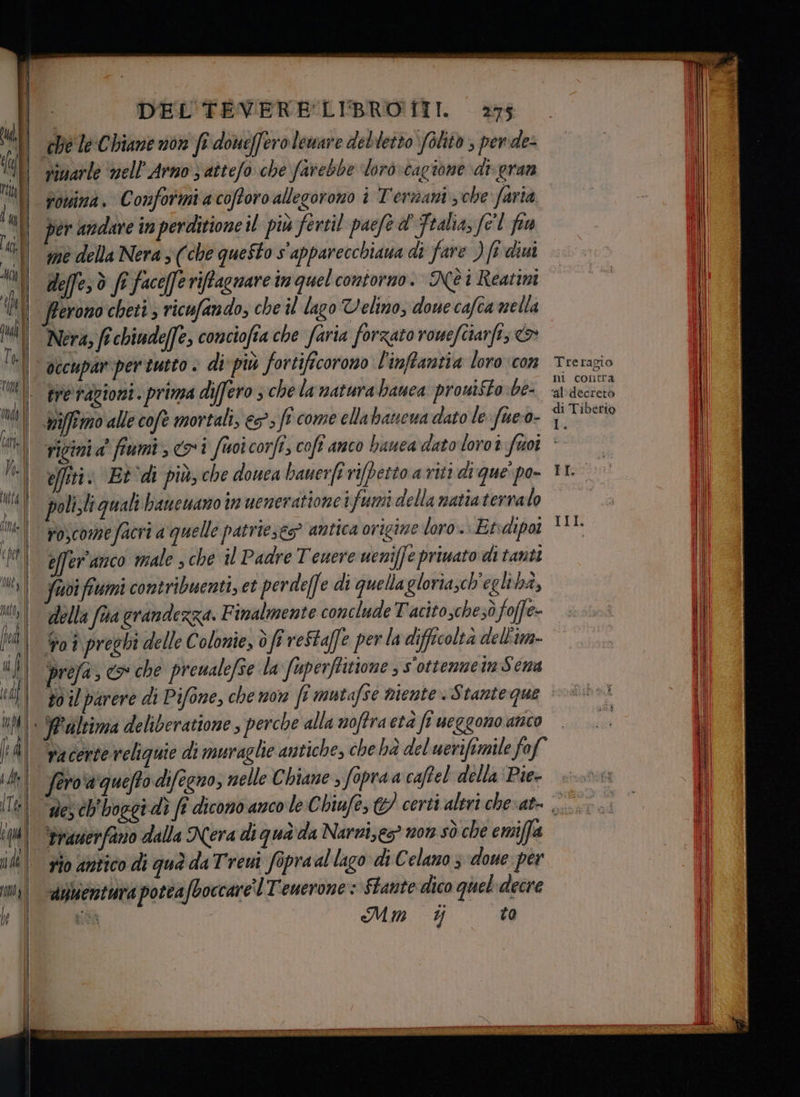 DEL TEVERE LIBRO III. 275
che le Chiane non ſi doueſſero leuare del letto ſolito, per de-
riuarle nell'Arno; atteſo che ſarebbe loro cagione di gran
rouina. Conformi a coſtoro allegorono i Ternani, che ſaria
per andare in perditione il più fertil paeſe d'Italia, ſe'l fiu
me della Nera, (che queſto s'apparecchiaua di fare) ſi diui
deſſe, ò ſi faceſſe riſtagnare in quel contorno. Nè i Reatini
ſterono cheti, ricuſando, che il lago Velino, doue caſca nella
Nera, ſi chiudeſſe, concioſia che ſaria forzato roueſciarſi, &
occupar per tutto. di più fortificorono l'inſtantia loro con
tre ragioni. prima diſſero, che la natura hauea prouiſto be-
niſſimo alle coſe mortali, & ſi come ella haueua dato le ſue o-
rigini a' fiumi, & i ſuoi corſi, coſi anco hauea dato loro i ſuoi
eſſiti. Et di più, che douea hauerſi riſpetto a riti di que' po-
poli, li quali haueuano in ueneratione i fumi della natia terra lo
ro, come ſacri a quelle patrie, & antica origine loro. Et dipoi
eſſer' anco male, che il Padre Teuere ueniſſe priuato di tanti
ſuoi fiumi contribuenti, et perdeſſe di quella gloria, ch'egli hà,
della ſua grandezza. Finalmente conclude Tacito, che, ò foſſe-
ro i preghi delle Colonie, ò ſi reſtaſſe per la difficoltà dell'im-
preſa, & che preualeſse la ſuperſtitione, s'ottenne in Sena
to il parere di Piſone, che non ſi mutaſse niente. Stante que
ſt'ultima deliberatione, perche alla noſtra età ſi ueggono anco
ra certe reliquie di muraglie antiche, che hà del ueriſimile foſ
ſero a queſto diſegno, nelle Chiane, ſopra a caſtel della Pie-
ue, ch'hoggi dì ſi dicono anco le Chiuſe, & certi altri che at-
trauerſano dalla Nera di quà da Narni, & non sò che emiſſa
rio antico di quà da Treui ſopra al lago di Celano, doue per
auuentura potea sboccare'l Teuerone: Stante dico quel decre
Mm ij to
Tre ragio
ni contra
al decreto
di Tiberio
I.
II.
III.